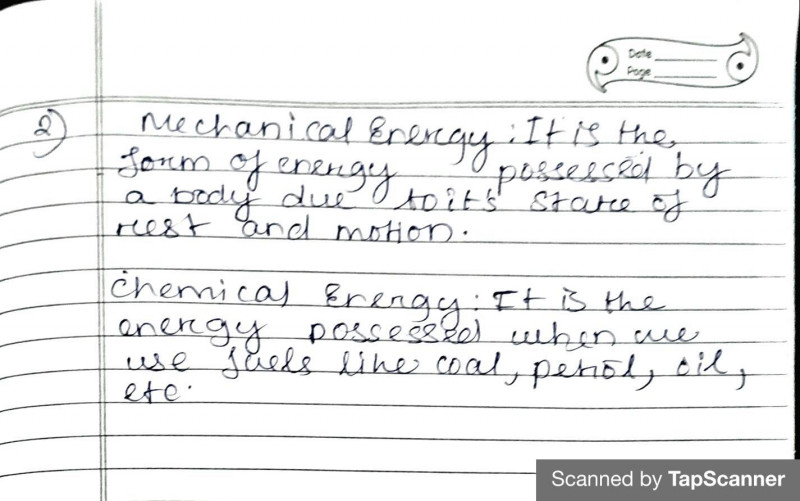 Date
Page
2) Mechanical Energy: It is the
form of energy possessed by
a body due to its state of
rest and motion.
Chemical Energy: It is the
energy possessed when we
use fuels like coal, petrol, oil,
etc.
Scanned by TapScanner